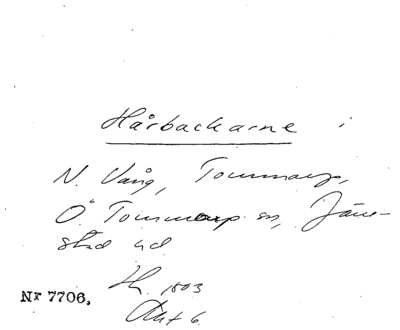 Hårbackarne i
N. Vång, Tommarp,
Ö Tommarp sn, Järre-
stad hd
1803
Akt 6.
Nr 7706.